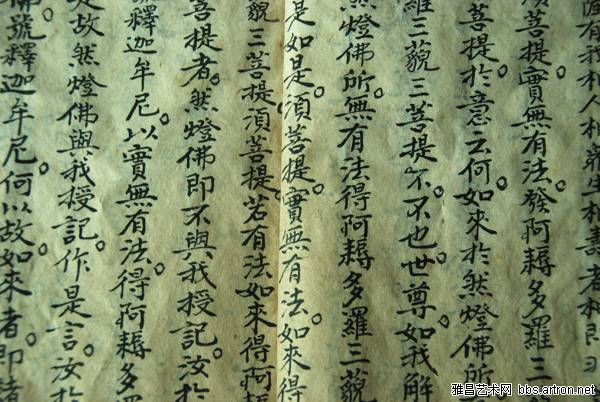 有我相人相衆生相壽者相即
須菩提實無有法。發阿耨多羅三
菩提於意云何如來於然燈佛所。
羅三藐三菩提不。不也。世尊如我解
然燈佛所。無有法得阿耨多羅三藐
是如是。須菩提。實無有法。如來得
藐三菩提須菩提。若有法如來得阿耨
菩提者。然燈佛即不與我授記。汝於
釋迦牟尼。以實無有法得阿耨多羅
是故然燈佛與我授記。作是言。汝於
佛號釋迦牟尼。何以故。如來者即諸
雅昌艺术网 bbs.artron.net